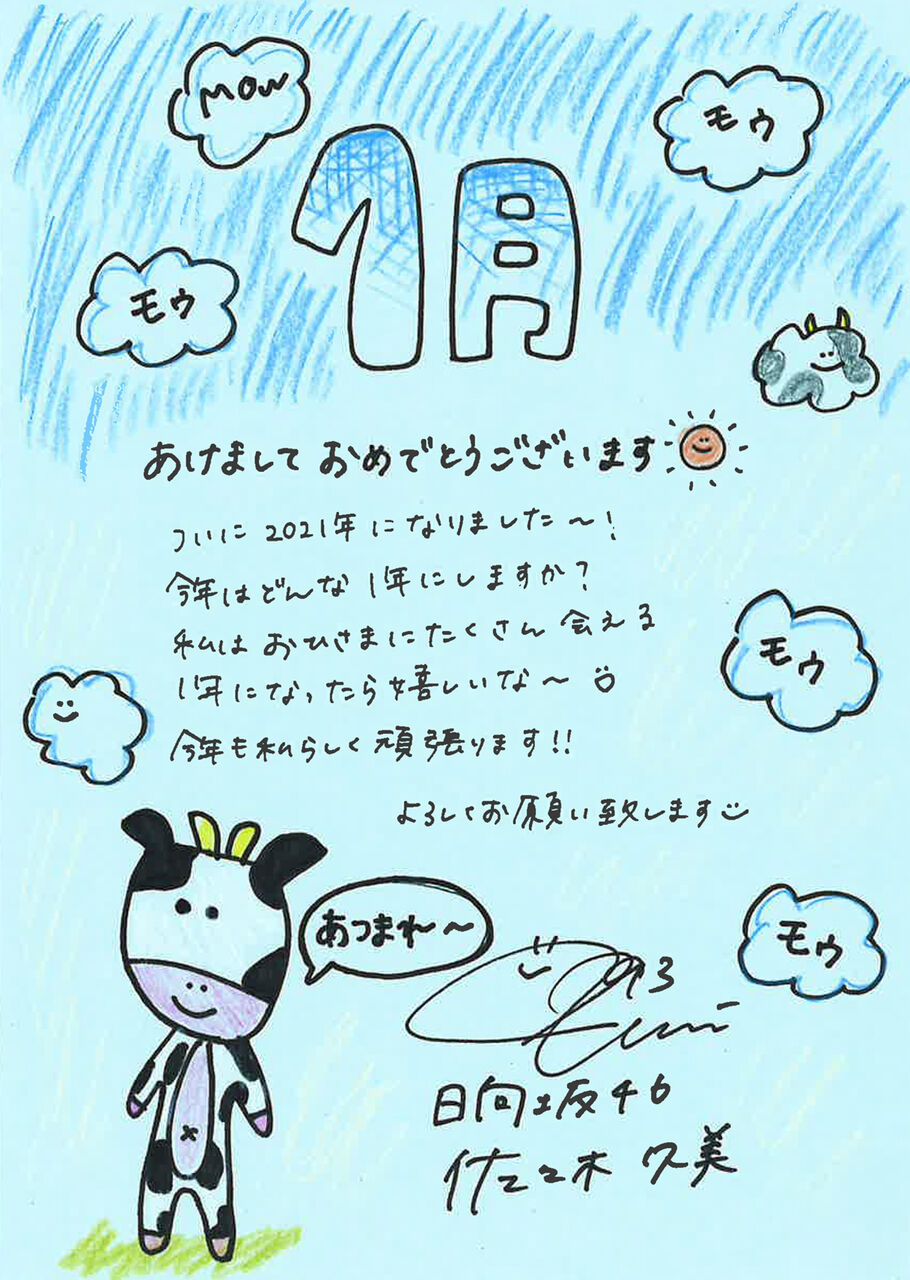 mow
モゥ
1月
モゥ
あけまして おめでとうございます
ついに 2021年になりました〜!
今年はどんな 1年にしますか?
私は おひさまにたくさん 会える
1年になったら嬉しいな〜
今年も私らしく 頑張ります!!
よろしくお願い致します
モゥ
あつまれ〜
モゥ
日向坂46
佐々木 久美